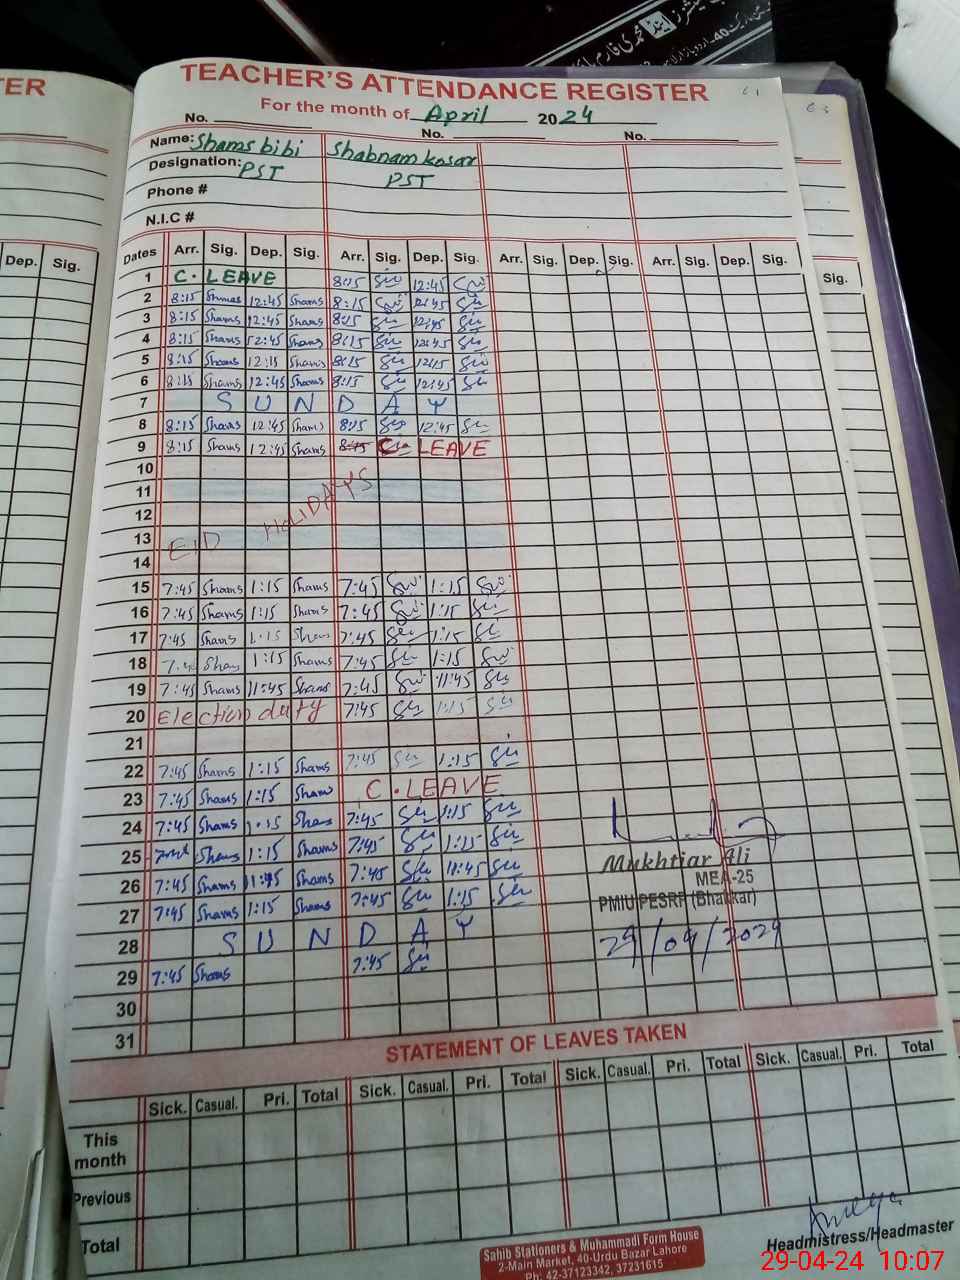 TER
TEACHER'S ATTENDANCE REGISTER
For the month of April 2024
No. No. No.
Name: Shams bibi Shabnam kosar
Designation: PST PST
Phone #
N.I.C #
Dep. Sig.
Dates Arr. Sig. Dep. Sig. Arr. Sig. Dep. Sig. Arr. Sig. Dep. Sig. Arr. Sig. Dep. Sig. Sig.
1 C. LEAVE 8:15 12:45
2 8:15 Shams 12:45 Shams 8:15 12:45
3 8:15 Shams 12:45 Shams 8:15 12:45
4 8:15 Shams 12:45 Shams 8:15 12:45
5 8:15 Shams 12:15 Shams 8:15 12:15
6 8:15 Shams 12:45 Shams 8:15 12:45
7 SUNDAY
8 8:15 Shams 12:45 Shams 8:15 12:45
9 8:15 Shams 12:45 Shams 8:45 C. LEAVE
10
11
12
EID HOLIDAYS
13
14
15 7:45 Shams 1:15 Shams 7:45 1:15
16 7:45 Shams 1:15 Shams 7:45 1:15
17 7:45 Shams 1:15 Shams 7:45 1:15
18 Shams 1:15 Shams 7:45 1:15
19 7:45 Shams 11:45 Shams 7:45 11:45
20 Election duty 7:45 1:15
21
22 7:45 Shams 1:15 Shams 7:45 1:15
23 7:45 Shams 1:15 Shams C. LEAVE
24 7:45 Shams 1:15 Shams 7:45 1:15
25 Shams 1:15 Shams 7:45 1:15
26 7:45 Shams 11:45 Shams 7:45 11:45
27 7:45 Shams 1:15 Shams 7:45 1:15
28 SUNDAY
29 7:45 Shams 7:45
30
31
Mukhtiar Ali
MEA-25
PMIU PESRP (Bhakkar)
29/04/2024
STATEMENT OF LEAVES TAKEN
Sick. Casual. Pri. Total Sick. Casual. Pri. Total Sick. Casual. Pri. Total Sick. Casual. Pri. Total
This month
Previous
Total
Headmistress/Headmaster
Sahib Stationers & Muhammadi Form House
2-Main Market, 40-Urdu Bazar Lahore
Ph: 42-37123342, 37231615
29-04-24 10:07